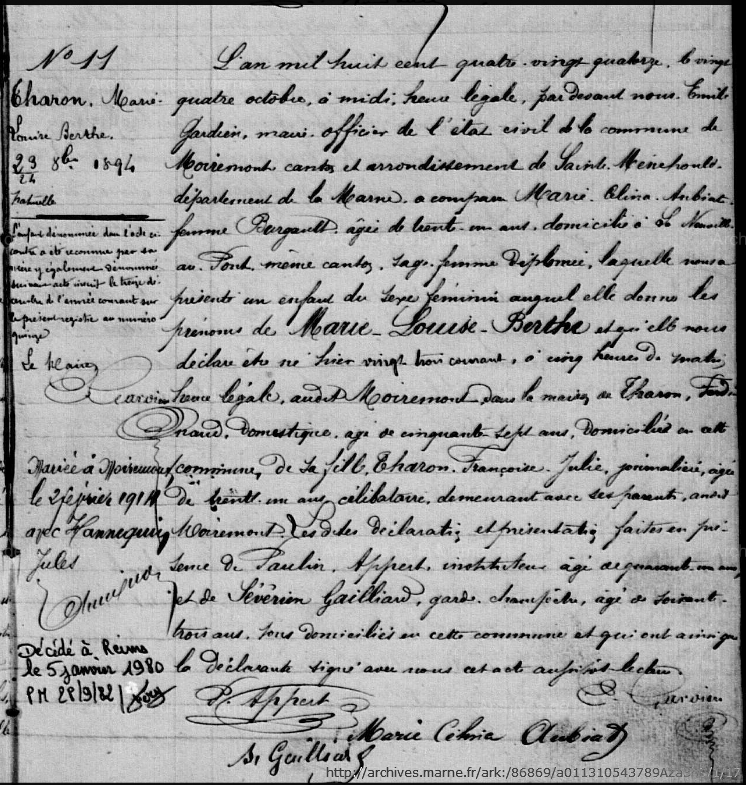 No 11
Tharon, Marie-
Louise Berthe.
23 8bre 1894
24
Naturelle
L'enfant dénommée dans l'acte ci-
contre a été reconnue par sa
mère y également dénommée
suivant acte inscrit le treize dé-
cembre de l'année courant sur
le présent registre au numéro
quinze
Le Maire,
Mariée à Moiremont
le 2 février 1914
avec Hannequin
Jules
Décédé à Reims
le 5 janvier 1980
L'an mil huit cent quatre-vingt quatorze, le vingt
quatre octobre, à midi, heure légale, par devant nous Emile
maire officier de l'état civil de la commune de
Moiremont canton et arrondissement de Sainte-Ménehould
département de la Marne, a comparu Marie-Célina Aubiat
femme Bargault, âgée de trente un ans, domiciliée à La Neuville
au-Pont, même canton, sage-femme diplômée, laquelle nous a
présenté un enfant du sexe féminin auquel elle donne les
prénoms de Marie-Louise-Berthe et qu'elle nous
déclare être né hier vingt trois courant, à cinq heures du matin,
heure légale, audit Moiremont, dans la maison de Tharon, Ferdi-
nand, domestique, âgé de cinquante-sept ans, domicilié en cette
commune, de sa fille Tharon, Françoise-Julie, journalière, âgée
de trente un ans, célibataire, demeurant avec ses parents, audit
Moiremont. Lesdites déclaration et présentation faites en pré-
sence de Paulin Appert, instituteur âgé de quarante un ans,
et de Séverien Gailliard, garde-champêtre, âgé de soixante-
trois ans, tous domiciliés en cette commune et qui ont ainsi que
la déclarante signé avec nous cet acte aussitôt lecture.
P. Appert
Marie Célina Aubiat
S. Gailliard
http://archives.marne.fr/ark:/86869/a011310543789